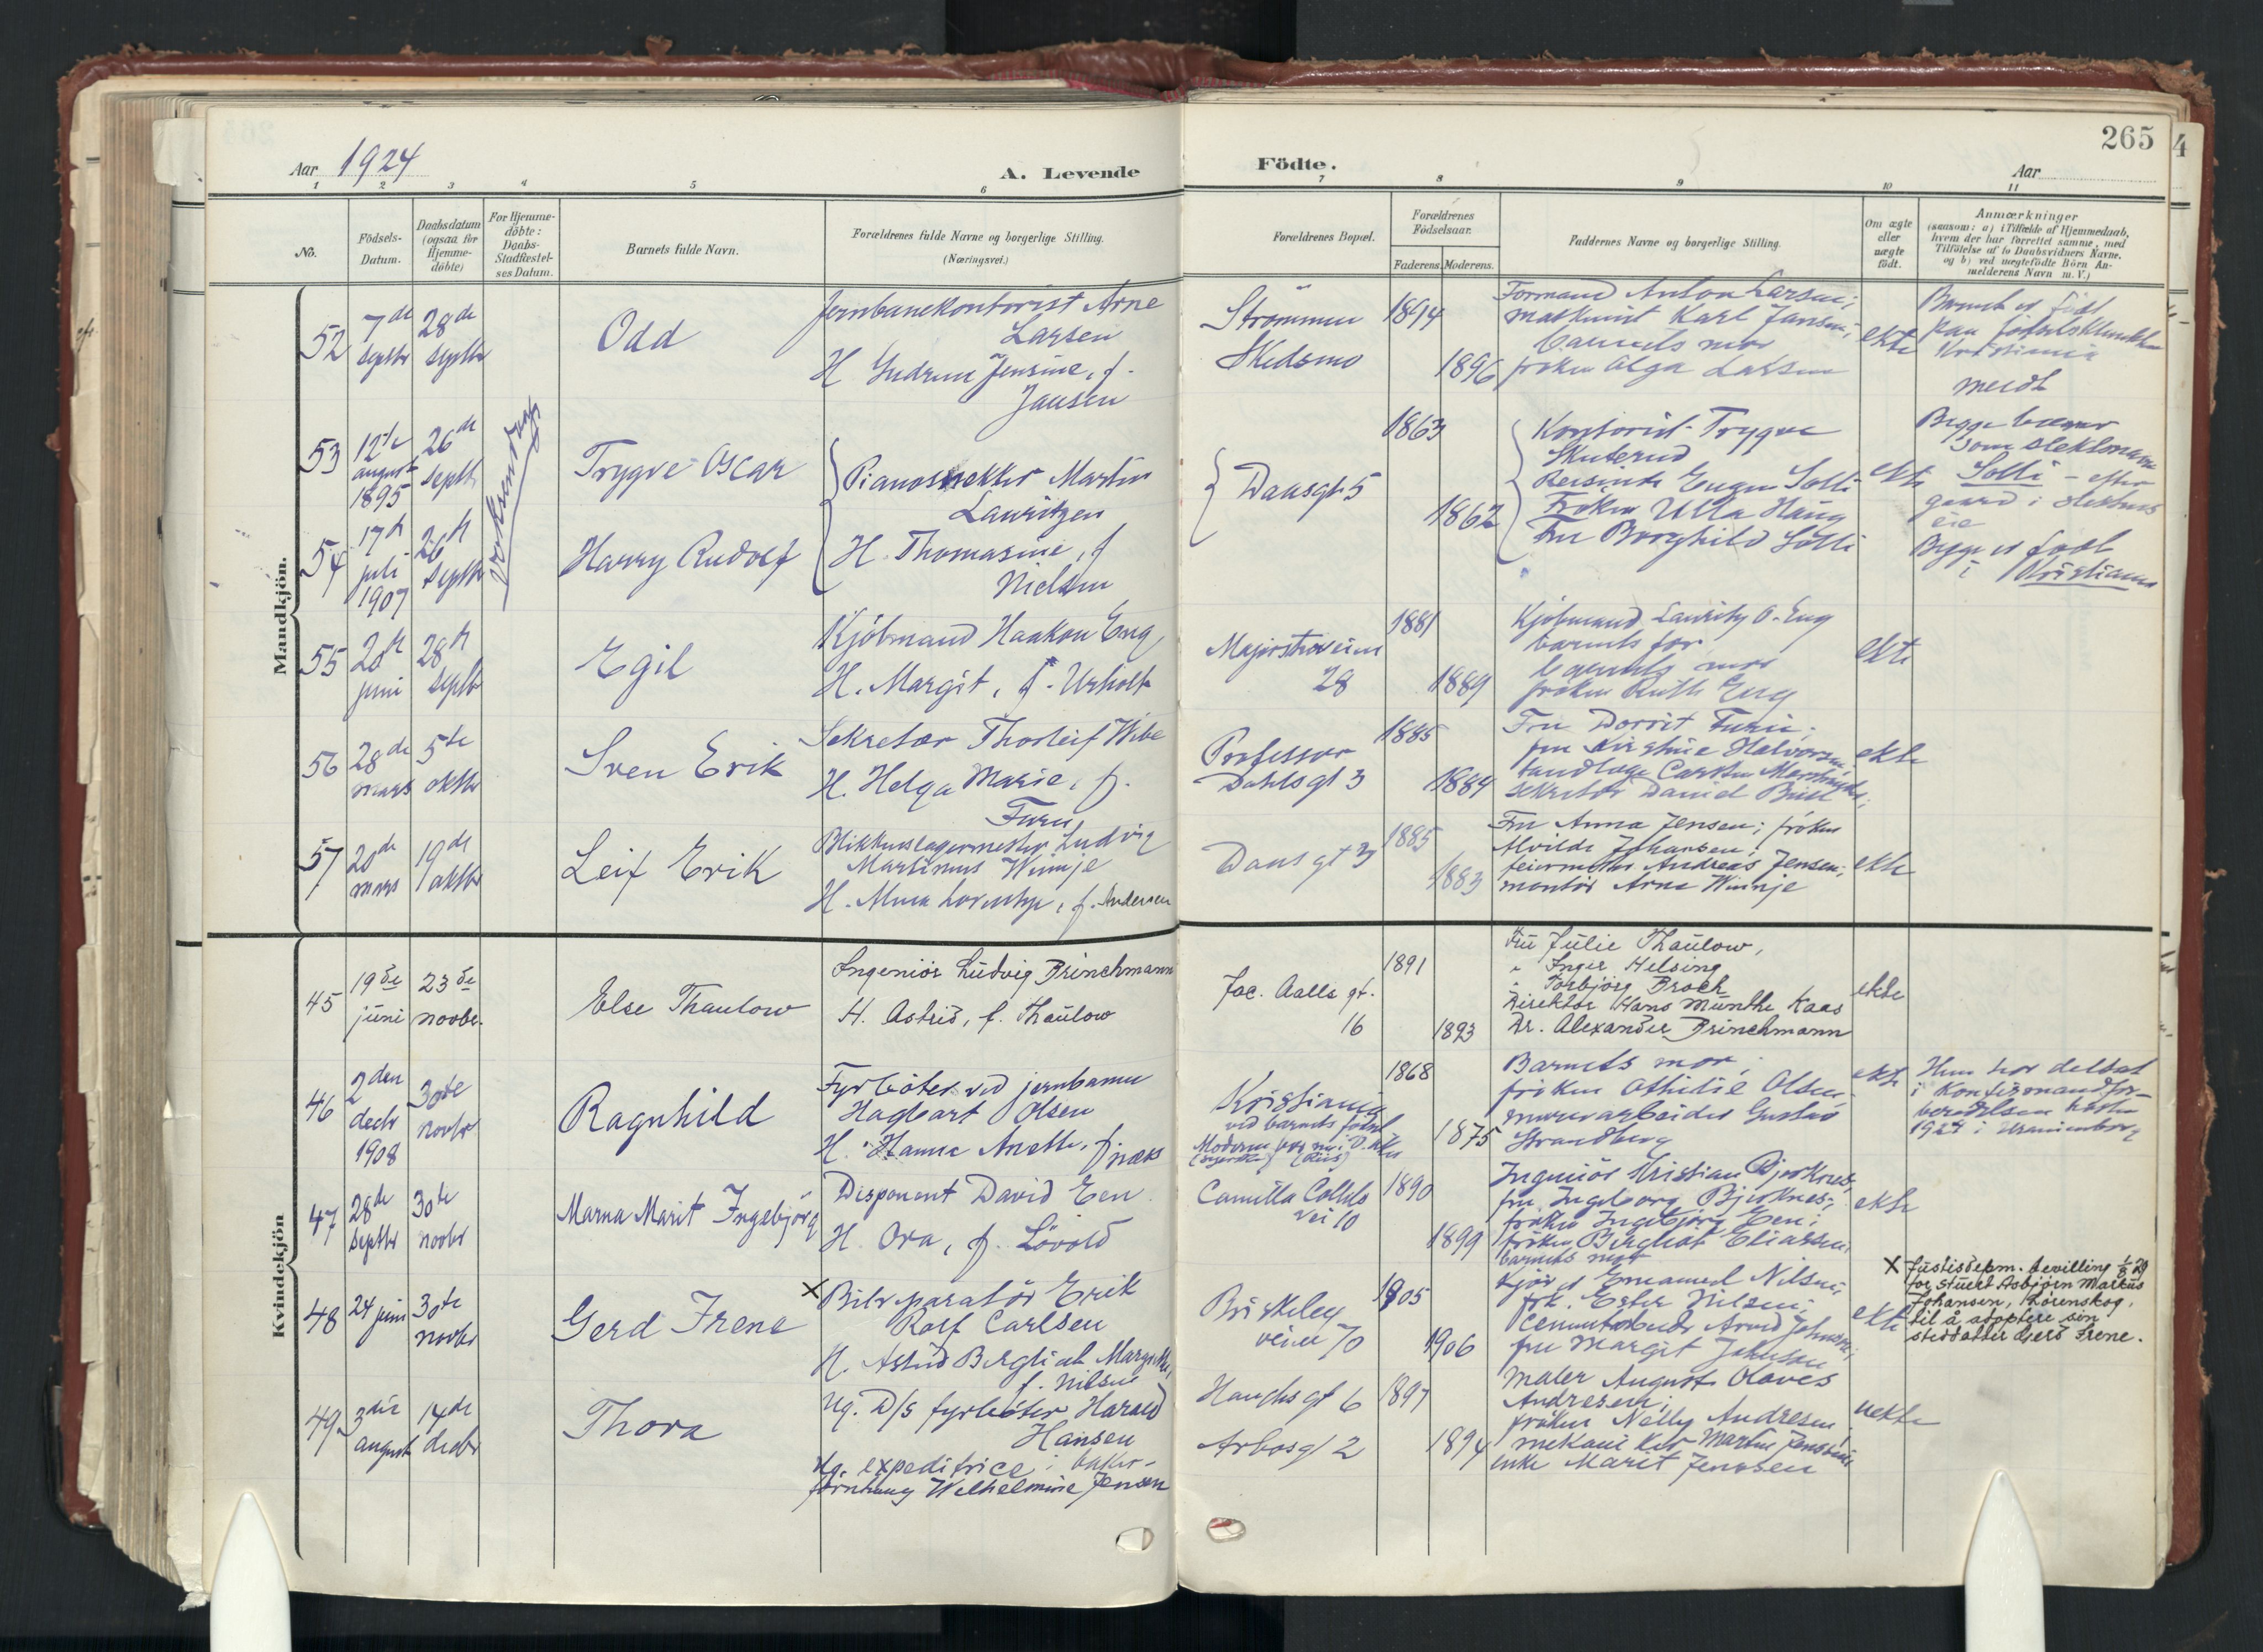 265
Aar 1924
A. Levende
Födte.
Aar
1 2 3 4 5 6 7 8 9 10 11
No.
Födsels-Datum.
Daabsdatum (ogsaa for Hjemme-döbte)
For Hjemme-döbte: Daabs-Stadfæstel-ses Datum.
Barnets fulde Navn.
Forældrenes fulde Navne og borgerlige Stilling. (Næringsvei.)
Forældrenes Bopæl.
Forældrenes Födselsaar.
Faderens.
Moderens.
Faddernes Navne og borgerlige Stilling.
Om ægte eller uægte født.
Anmærkninger
(saasom: a) i Tilfælde af Hjemmedaab,
hvem der har forrettet samme, med
Tilföielse af to Daabsvidners Navne.
og b) ved uægtefödte Börn An-
melderens Navn m. V.)
Mandkjön.
52
7de septbr
28de septbr
Odd
Jernbanekontorist Arne
Larsen
H. Gudrun Jensine, f.
Jansen
Strömmen
Skedsmo
1894
1896
Formand Anton Larsen;
maskinist Karl Jansen;
barnets mor
fröken Olga Larsen
ekte
Barnet er födt
paa födselsklinikken
Kristiania
53
12te august 1895
26de septbr
voksendaap
Trygve Oscar
Pianosnekker Martin
Lauritzen
H. Thomasine, f
Nielsen
Daasgt 5
1863
1862
Kontorist Trygve
Skuterud
Reisende Eugen Solli
Fröken Ulla Haug
Fru Borghild Solli
ekte
Begge bærer
som slektsnavn
Solli - efter
gaard i slektens
eie
Begge er födt
i Kristiania
54
17de juli 1907
26de septbr
Harry Rudolf
55
20de juni
28de septbr
Egil
Kjöbmand Haakon Eng,
H. Margit, f. Urholt
Majorstuveien
28
1881
1889
Kjöbmand Lauritz O. Eng
barnets far
barnets mor
fröken Ruth Eng
ekte
56
28de mars
5te oktbr
Sven Erik
Sekretær Thorleif Wibe
H. Helga Marie, f.
Furu
Professor
Dahlsgt 3
1885
1884
Fru Dorrit Furu;
fru Kirstine Halvorsen
tandlæge Carsten
sekretær Daniel
ekte
57
20de mars
19de oktbr
Leif Erik
Blikkenslagermester Ludvig
Martinius Winnje
H. Alma Loventze, f. Andersen
Daasgt 3
1885
1883
Fru Anna Jensen; fröken
Alvilde Johansen;
feiermester Andreas Jensen;
montör Arne Winnje
ekte
Kvindekjön
45
19de juni
23de novbr.
Else Thaulow
Ingeniör Ludvig Brinchmann
H. Astrid, f. Thaulow
Joc. Aalls gt.
16
1891
1893
Fru Julie Thaulow,
" Inger Helsing
" Torbjörg Broch
Direktör Hans Münthe Kaas
Dr. Alexander Brinchmann
ekte
46
2den decbr 1908
30te novbr
Ragnhild
Fyrböter ved jernbanen
Hagbart Olsen
H. Hanna Anette, f. næss
Kristiania
ved barnets födsel
1868
1875
Barnets mor;
fröken Othilie Olsen
murerarbeider Gustav
Strandberg
ekte
Hun har deltat
i konfirmandfor-
beredelsen hösten
1924 i Uranienborg
47
28de septbr
30te novbr
Marna Marit Ingebjörg
Disponent David Een
H. Ora, f. Lövold
Camilla Colletts
vei 10
1890
1899
Ingeniör Kristian Bjerknes,
fru Ingeborg Bjerknes;
fröken Ingebjörg Een;
fröken Bergliot Eliassen;
barnets mor
ekte
48
24 juni
30te novbr
Gerd Irene
X Bilreparatör Erik
Rolf Carlsen
H. Astrid Bergliot Margrethe,
f. Nilsen
Briskeby
veien 70
1905
1906
Kjör er Emanuel Nilsen;
frk. Ester Nilsen;
cementarbeider Arvid Johnsen;
fru Margit Johnson
ekte
X Justisdepm. bevilling
for stuert Asbjörn Markus
Johansen, Lörenskog,
til å adoptere sin
steddatter Gerd Irene.
49
3die august
14de decbr
Thora
Ug. D/S fyrböter Harald
Hansen
Ug. expeditrice i baker-
forretning Wilhelmine Jensen
Haughs gt 6
Arbosgt 2
1897
1894
Maler August Olaves
Andresen;
fröken Nelly Andresen;
mekaniker Martin Jensen;
enke Marit Jenssen
uekte